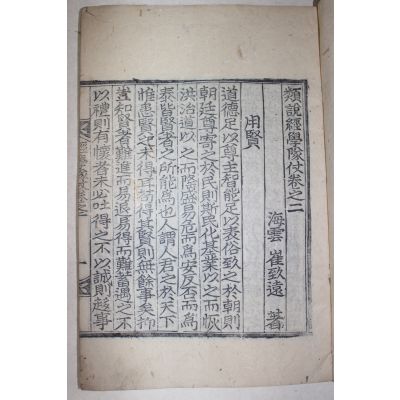 類說經學隊仗卷之二
海雲 崔致遠 著
用賢
道德足以尊主智能足以庇俗致之於朝則
朝廷尊寄之於民則其民化基業以之而恢
洪治道以之而隆盛易危而爲安反否而爲
泰皆賢者之所能爲也人謂人君之於天下
惟患賢之未得耳苟得其賢則無餘事矣抑
豈知賢者難進而易退易得而難畜遇之不
以禮則有懷者未必吐得之不以誠則趍事